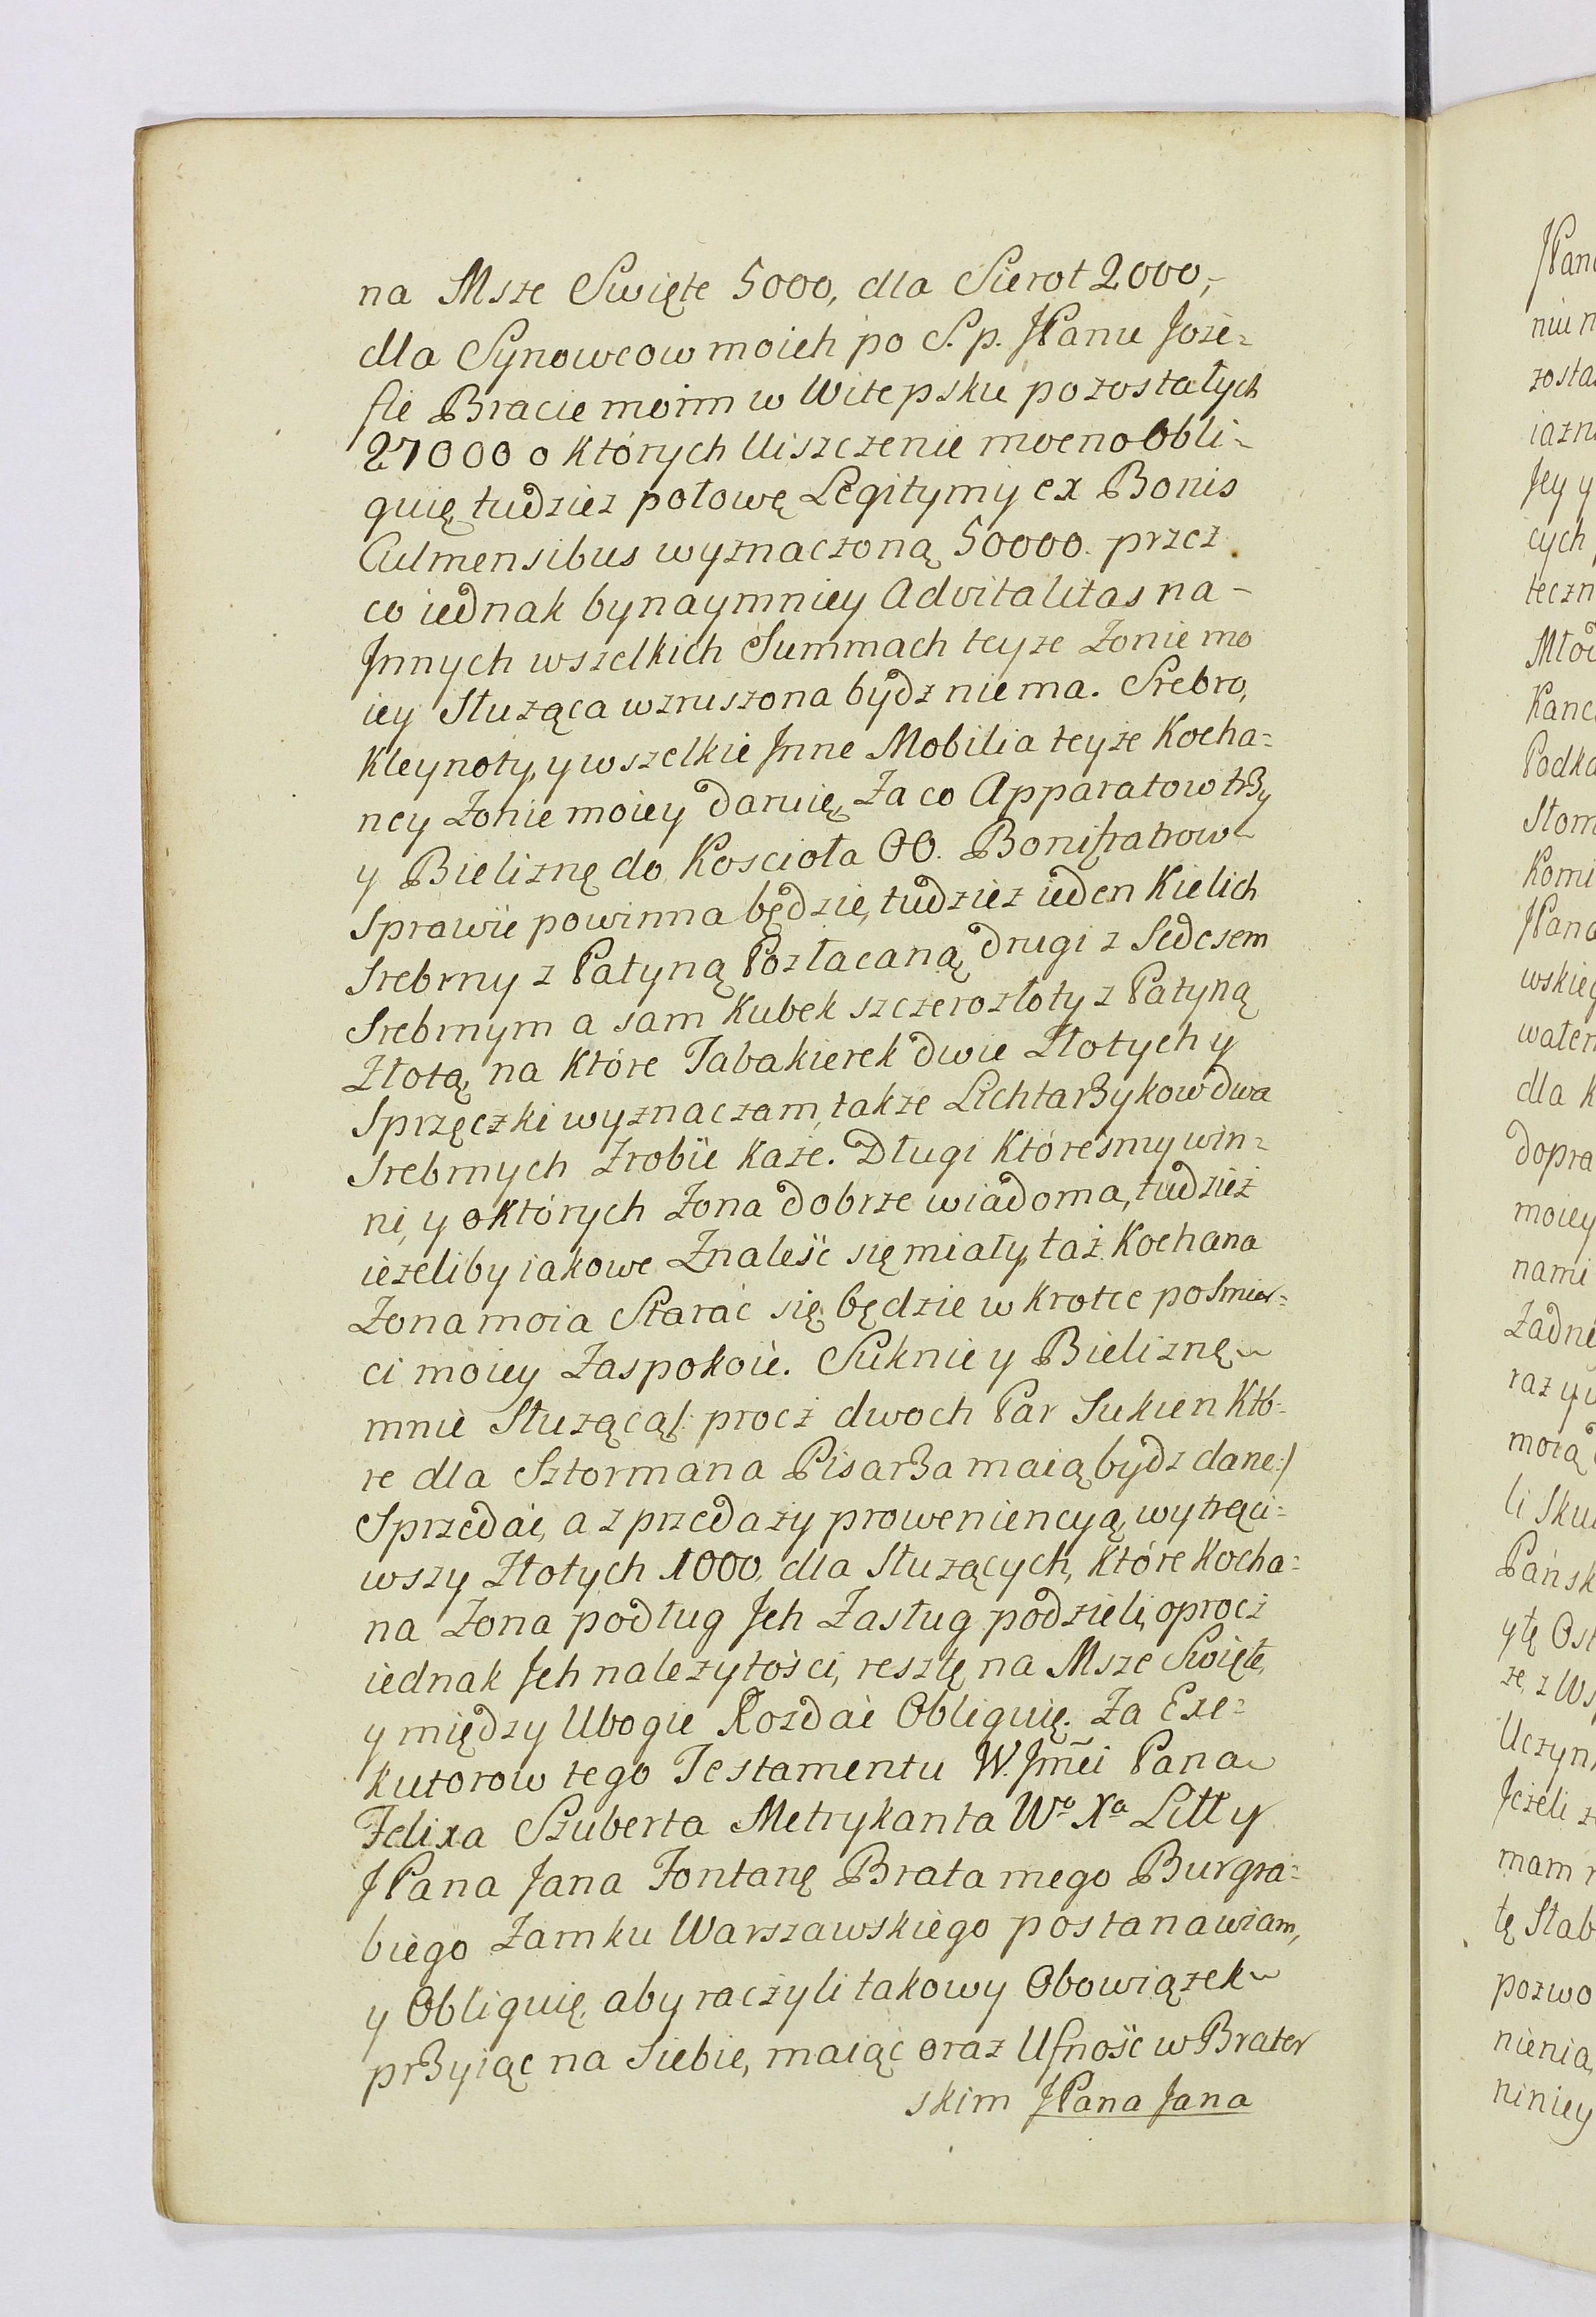 na Msze Swięte 5000, dla Sierot 2000,-
dla Synowcow moich po S. p. JPanu Joze=
fie Bracie moim w Witepsku pozostałych
27000 o których Uiszczenie mocno Obli-
guię, tudziez połowę Legitymy ex Bonis
Culmensibus wyznaczoną 50000. przez
co iednak bynaymniey Advitalitas na-
Jnnych wszelkich Summach teyze Zonie mo
iey Służąca wzruszona bydz nie ma. Srebro,
Kleynoty, y wszelkie Jnne Mobilia teyże Kocha=
ney Żonie moiey daruię, Za co Apparatow trzy
y Bieliznę do Koscioła OO. Bonifratrow
Sprawić powinna będzie, tudziez ieden Kielich
Srebrny z Patyną Pozłacaną, drugi z Sedesem
Srebrnym a sam Kubek szczerozłoty z Patyną
Złotą, na Które Tabakierek dwie Złotych y
Sprzęczki wyznaczam, także Lichtarzykow dwa
Srebrnych Zrobić każe. Długi Któresmy win=
ni, y o Których Żona dobrze wiadoma, tudzież
ieżeliby iakowe Znaleść się miały, taż Kochana
Żona moia Starać się będzie w Krotce po Smier=
ci moiey Zaspokoić. Suknie y Bieliznę
mnie Służącą /: procz dwoch Par Sukien Któ=
re dla Sztormana Pisarza maią bydz dane :/
Sprzedać, a z przedaży proweniencyą, wytrąci=
wszy Złotych 1000, dla Służących, Które Kocha=
na Żona podług Jch Zasług podzieli, oprocz
iednak Jch nalezytości, resztę na Msze Święte,
y między Ubogie Rozdać Obliguię. Za Exe=
kutorow tego Testamentu W. Jmći Pana
Felixa Szuberta Metrykanta Wo Xa Litt y
JPana Jana Fontanę Brata mego Burgra=
biego Zamku Warszawskiego postanawiam,
y Obliguię, aby raczyli takowy Obowiązek
przyiąć na Siebie, maiąc oraz Ufność w Brater
skim JPana Jana